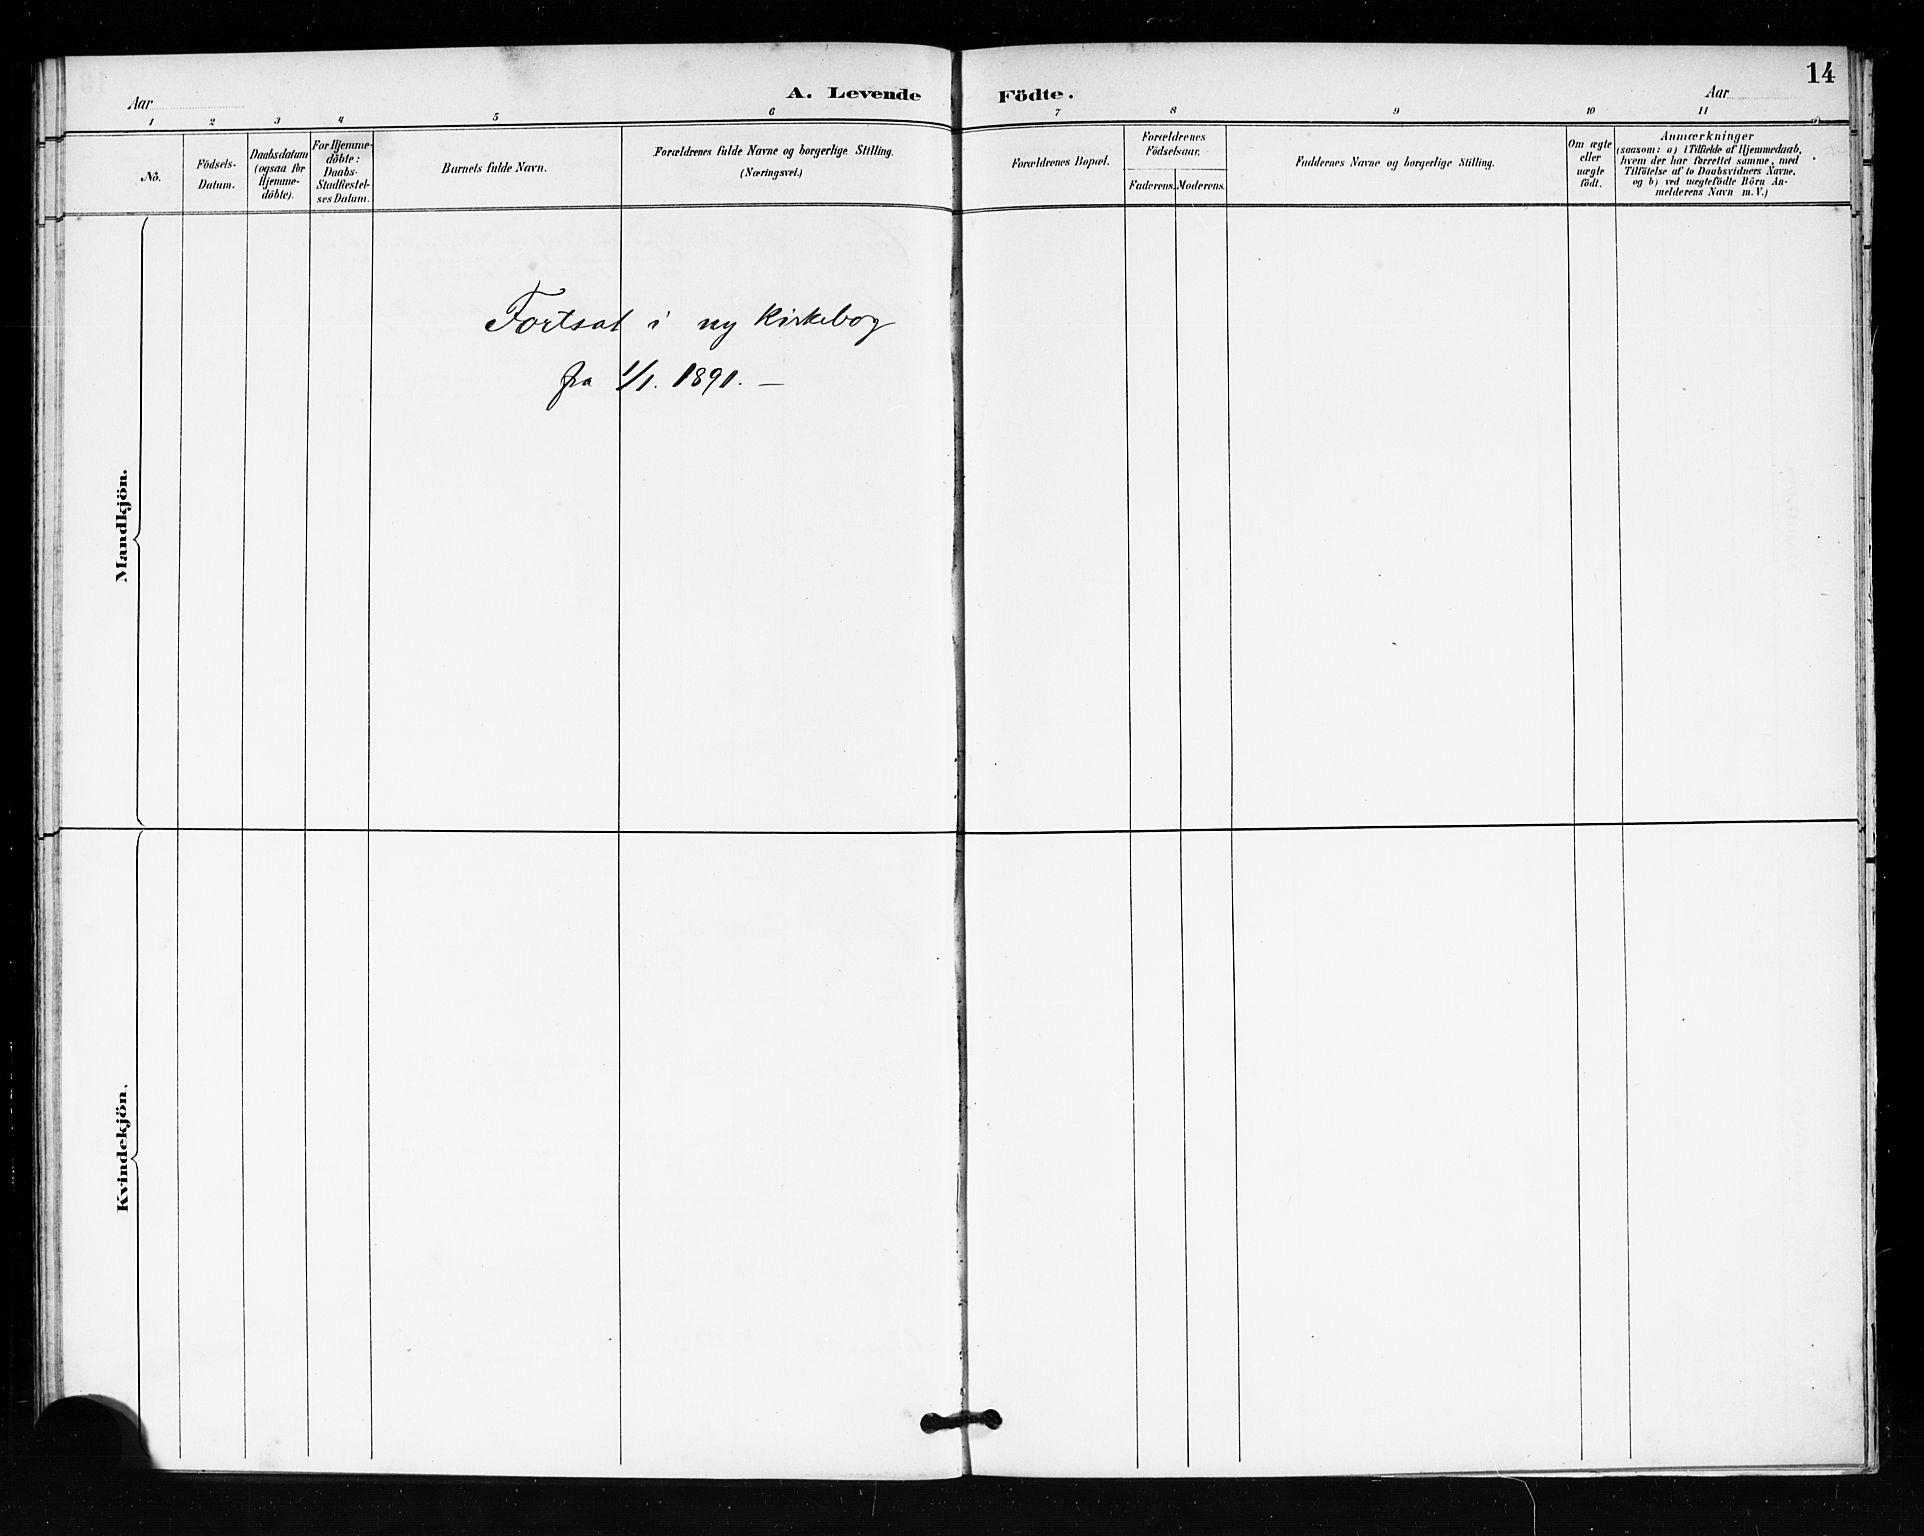 14
Aar
A. Levende Födte.
Aar
1 2 3 4 5 6 7 8 9 10 11
No.
Födsels-
Datum.
Daabsdatum
(ogsaa for
Hjemme-
döbte).
For Hjemme-
döbte:
Daabs-
Stadfæstel-
ses Datum.
Barnets fulde Navn.
Forældrenes fulde Navne og borgerlige Stilling.
(Næringsvei.)
Forældrenes Bopæl.
Forældrenes
Födselsaar.
Faderens. Moderens.
Faddernes Navne og borgerlige Stilling.
Om ægte
eller
uægte
födt.
Anmærkninger
(saasom: a) i Tilfælde af Hjemmedaab,
hvem der har forrettet samme, med
Tilföielse af to Daabsvidners Navne,
og b) ved uægtefödte Börn An-
melderens Navn m. V.)
Mandkjön.
Fortsat i ny Kirkebog
fra 1/1. 1891. —
Kvindekjön.